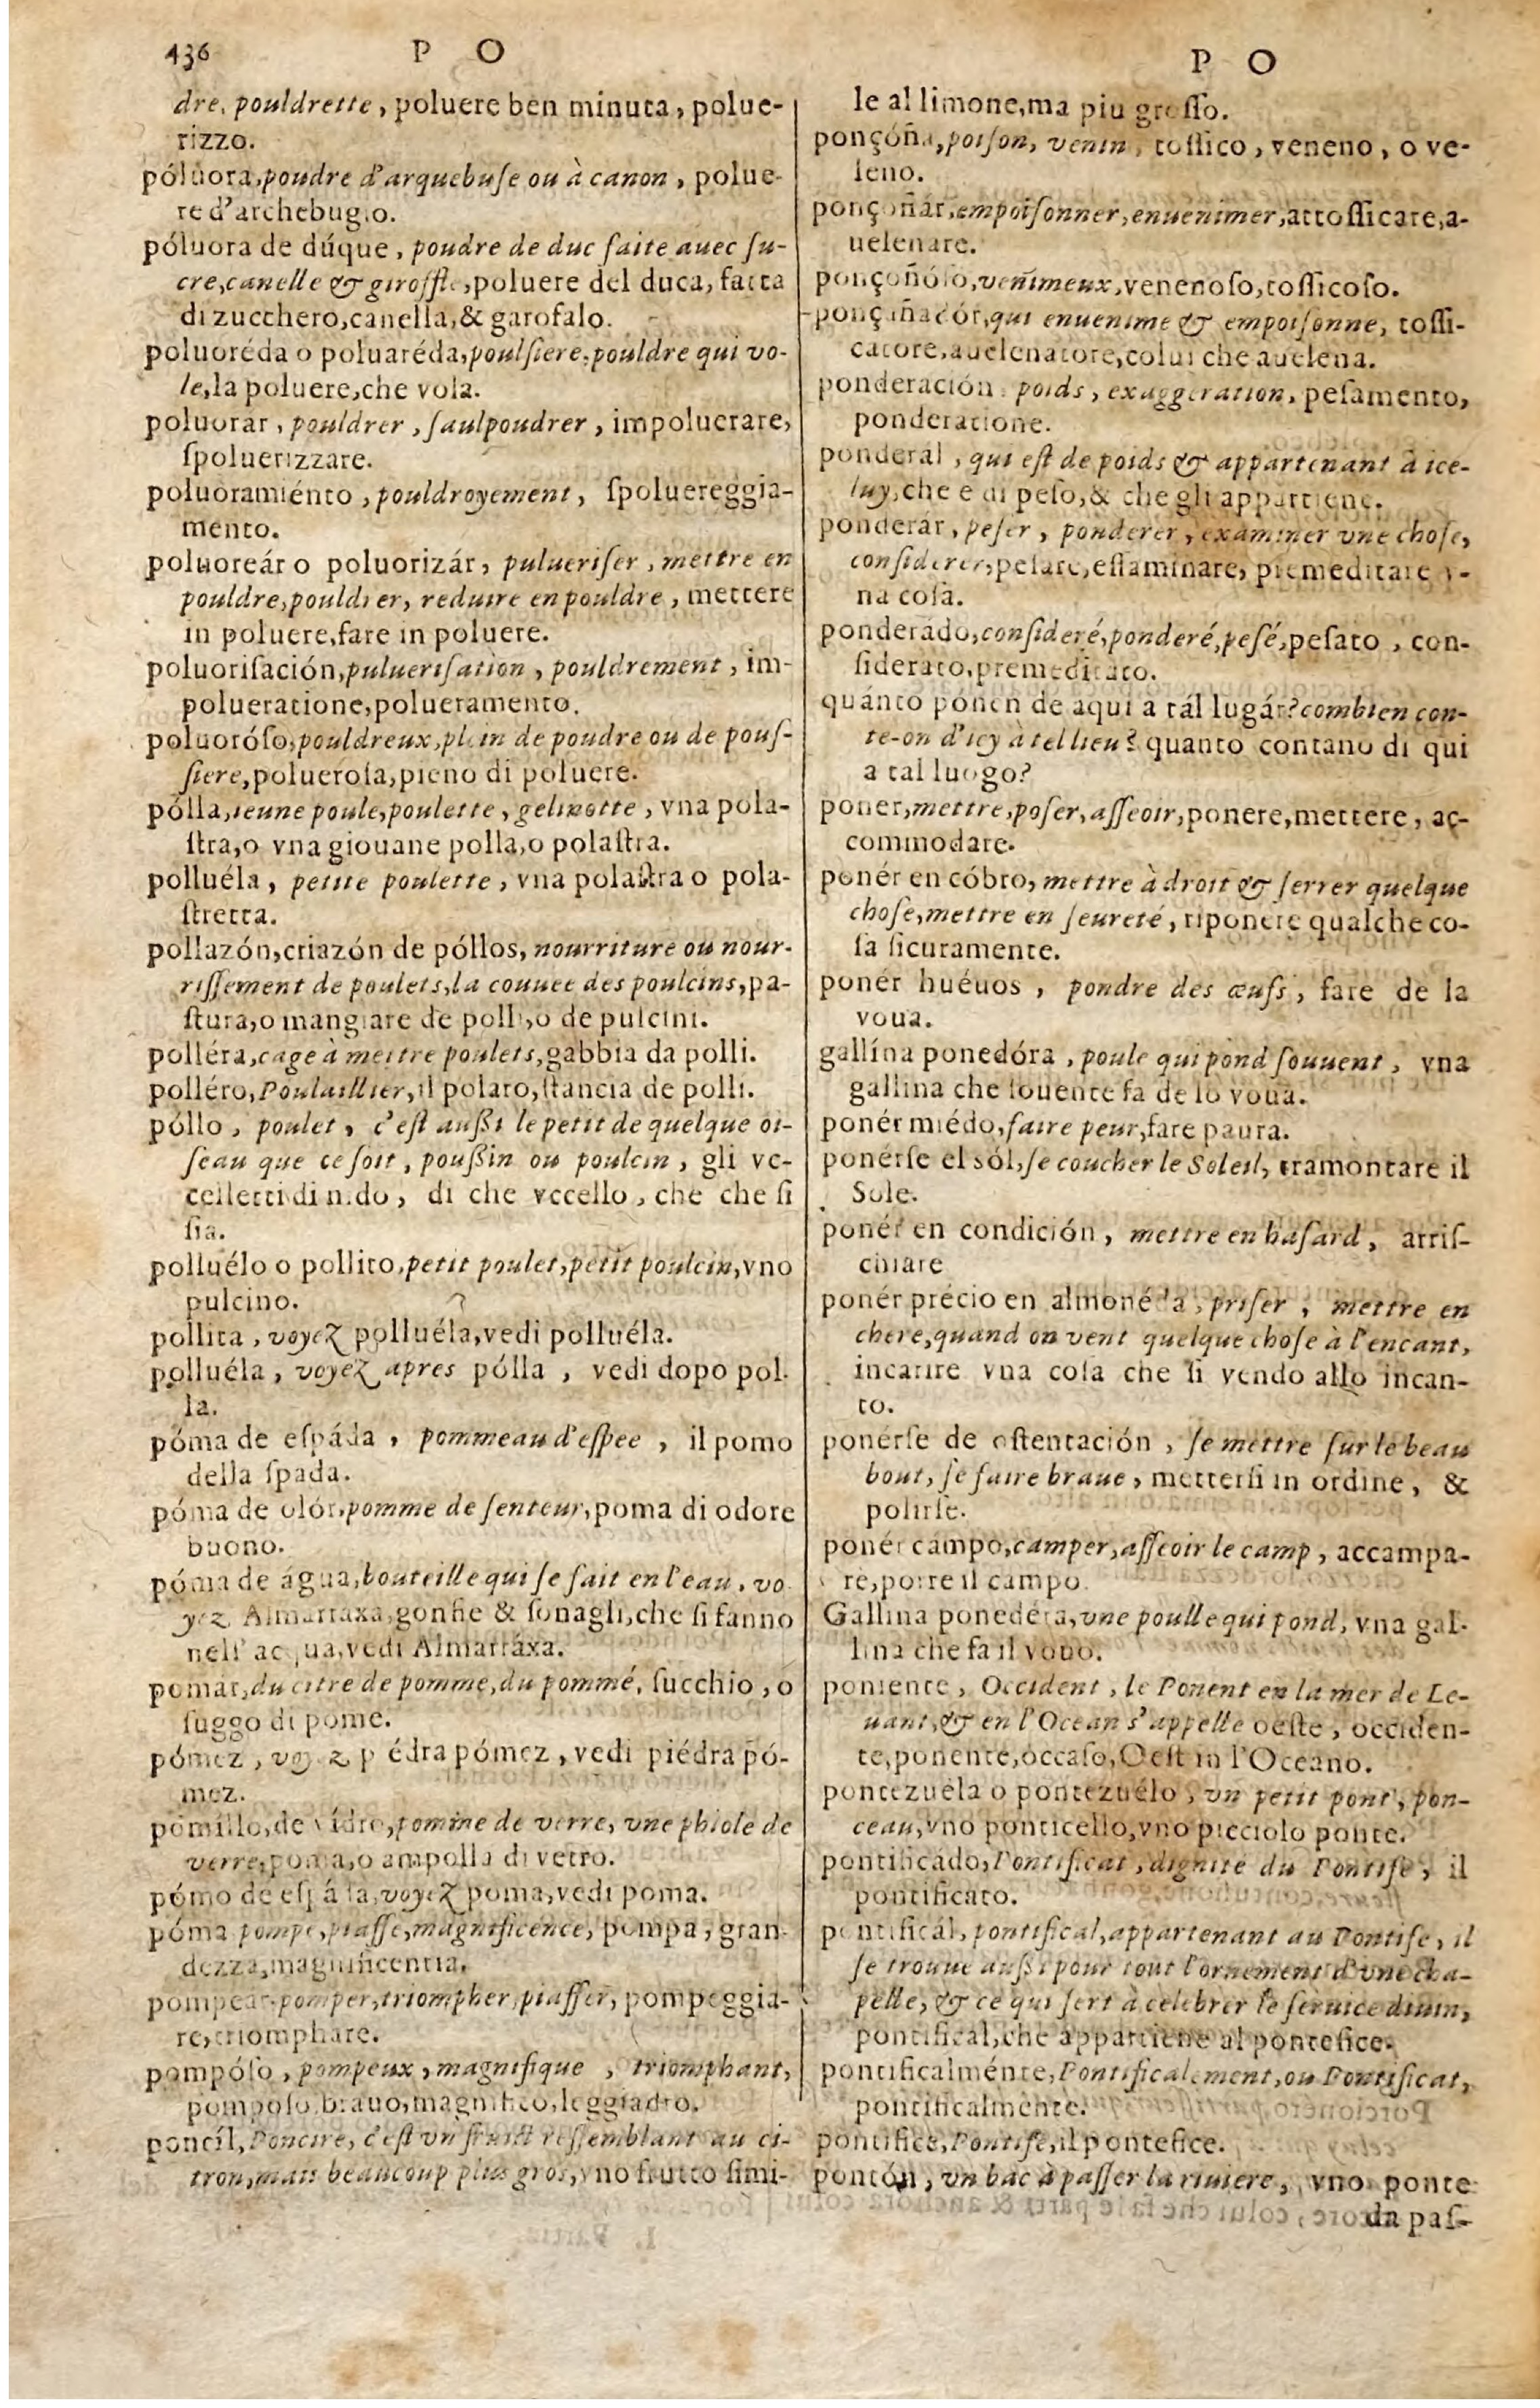 436 P O
dre, pouldrette, poluere ben minuta, polue-
rizzo.
póluora, poudre d'arquebuſe ou à canon, polue-
re d'archebugio.
póluora de dúque, poudre de duc faite auec ſu-
cre, canelle & giroffle, poluere del duca, fatta
di zucchero, canella, & garofalo.
poluoréda o poluaréda, poulſiere, pouldre qui vo-
le, la poluere, che vola.
poluorar, pouldrer, ſaulpoudrer, impoluerare,
ſpoluerizzare.
poluoramiénto, pouldroyement, ſpoluereggia-
mento.
poluoreár o poluorizár, pulueriſer, mettre en
pouldre, pouldrer, reduire en pouldre, mettere
in poluere, fare in poluere.
poluoriſación, pulueriſation, pouldrement, im-
polueratione, polueramento.
poluoróſo, pouldreux, plein de poudre ou de pouſ-
ſiere, polueroſa, pieno di poluere.
pólla, ieune poule, poulette, gelinotte, vna pola-
ſtra, o vna giouane polla, o polaſtra.
polluéla, petite poulette, vna polaſtra o pola-
ſtretta.
pollazón, criazón de póllos, nourriture ou nour-
riſſement de poulets, la couuee des poulcins, pa-
ſtura, o mangiare de polli, o de pulcini.
polléra, cage à mettre poulets, gabbia da polli.
polléro, Poulaillier, il polaro, ſtancia de polli.
póllo, poulet, c'eſt außi le petit de quelque oi-
ſeau que ce ſoit, poußin ou poulcin, gli vc-
celletti di nido, di che vccello, che che ſi
ſia.
polluélo o pollito, petit poulet, petit poulcin, vno
pulcino.
pollita, voyez polluéla, vedi polluéla.
polluéla, voyez apres pólla, vedi dopo pol-
la.
póma de eſpáda, pommeau d'eſpee, il pomo
della ſpada.
póma de olór, pomme de ſenteur, poma di odore
buono.
póma de água, bouteille qui ſe fait en l'eau, vo-
yez Almarraxa, gonfie & ſonagli, che ſi fanno
nell' acqua, vedi Almarráxa.
pomar, du citre de pomme, du pommé, ſucchio, o
ſuggo di pome.
pómez, voyez piédra pómez, vedi piédra pó-
mez.
pomíllo, de vídro, pomme de verre, vne phiole de
verre, poma, o ampolla di vetro.
pómo de eſpáda, voyez poma, vedi poma.
póma pompe, piaffe, magnificence, pompa, gran-
dezza, magnificentia.
pompear, pomper, triompher, piaffer, pompeggia-
re, triomphare.
pompóſo, pompeux, magnifique, triomphant,
pompoſo, brauo, magnifico, leggiadro.
poncíl, Poncire, c'eſt vn fruict reſſemblant au ci-
tron, mais beaucoup plus gros, vno frutto ſimi-
P O
le al limone, ma piu groſſo.
ponçóña, poiſon, venin, toſſico, veneno, o ve-
leno.
ponçoñár, empoiſonner, enuenimer, attoſſicare, a-
uelenare.
ponçoñóſo, venimeux, venenoſo, toſſicoſo.
ponçiñadór, qui enuenime & empoiſonne, toſſi-
catore, auelenatore, colui che auelena.
ponderación, poids, exaggeration, peſamento,
ponderatione.
ponderal, qui eſt de poids & appartenant à ice-
luy, che e di peſo, & che gli appartiene.
ponderár, peſer, ponderer, examiner vne choſe,
conſiderer, peſare, eſſaminare, premeditare v-
na coſa.
ponderádo, conſideré, ponderé, peſé, peſato, con-
ſiderato, premeditato.
quánto pónen de aqui a tál lugár? combien con-
te-on d'icy à tel lieu? quanto contano di qui
a tal luogo?
poner, mettre, poſer, aſſeoir, ponere, mettere, ac-
commodare.
ponér en cóbro, mettre à droit & ſerrer quelque
choſe, mettre en ſeureté, riponere qualche co-
ſa ſicuramente.
ponér huéuos, pondre des œufs, fare de la
voua.
gallína ponedóra, poule qui pond ſouuent, vna
gallina che ſouente fa de lo voua.
ponér miédo, faire peur, fare paura.
ponérſe el sól, ſe coucher le Soleil, tramontare il
Sole.
ponér en condición, mettre en haſard, arriſ-
chiare
ponér précio en almonéda, priſer, mettre en
chere, quand on vent quelque choſe à l'encant,
incarire vna coſa che ſi vendo allo incan-
to.
ponérſe de oſtentación, ſe mettre ſur le beau
bout, ſe faire braue, metterſi in ordine, &
polirſe.
ponér cámpo, camper, aſſeoir le camp, accampa-
re, porre il campo.
Gallina ponedéra, vne poulle qui pond, vna gal-
lina che fa il vouo.
poniente, Occident, le Ponent en la mer de Le-
uant, & en l'Ocean s'appelle oeſte, occiden-
te, ponente, occaſo, Oeſt in l'Oceano.
pontezuéla o pontezuélo, vn petit pont, pon-
ceau, vno ponticello, vno picciolo ponte.
pontificádo, Pontificat, dignité du Pontife, il
pontificato.
pontificál, pontifical, appartenant au Pontife, il
ſe trouue außi pour tout l'ornement d'vne cha-
pelle, & ce qui ſert à celebrer le ſeruice diuin,
pontifical, che appartiene al pontefice.
pontificalménte, Pontificalement, ou Pontificat,
pontificalmente.
pontifice, Pontife, il pontefice.
pontón, vn bac à paſſer la riuiere, vno ponte
da paſ-